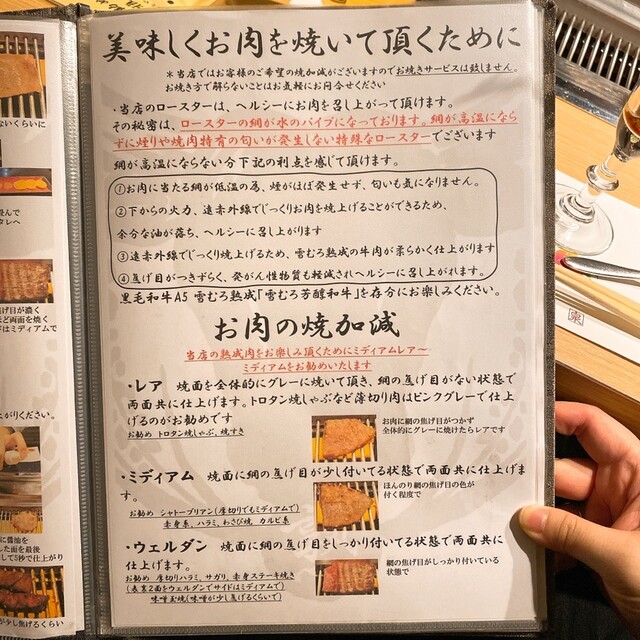 美味しくお肉を焼いて頂くために
＊当店ではお客様のご希望の焼加減がございますのでお焼きサービスは致しません。
お焼き方で解らないことはお気軽にお問合せください
・当店のロースターは、ヘルシーにお肉を召し上がって頂けます。
その秘密は、ロースターの網が水のパイプになっております。網が高温になら
ずに煙りや焼肉特有の匂いが発生しない特殊なロースターでございます
網が高温にならない分下記の利点を感じて頂けます。
①お肉に当たる網が低温の為、煙がほぼ発生せず、匂いも気になりません。
②下からの火力、遠赤外線でじっくりお肉を焼上げることができるため、
余分な油が落ち、ヘルシーに召し上がります
③遠赤外線でじっくり焼上げるため、雪むろ熟成の牛肉が柔らかく仕上がります
④焦げ目がつきずらく、発がん性物質も軽減されヘルシーに召し上がれます。
黒毛和牛A5 雪むろ熟成「雪むろ芳醇和牛」を存分にお楽しみください。
お肉の焼加減
当店の熟成肉をお楽しみ頂くためにミディアムレア～
ミディアムをお勧めいたします
・レア　焼面を全体的にグレーに焼いて頂き、網の焦げ目がない状態で
両面共に仕上げます。トロタン焼しゃぶなど薄切り肉はピンクグレーで仕上
げるのがお勧めです
お勧め トロタン焼しゃぶ、焼すき
お肉に網の焦げ目がつかず
全体的にグレーに焼けたらレアです
・ミディアム　焼面に網の焦げ目が少し付いてる状態で両面共に仕上げま
す。
お勧め シャトーブリアン(厚切りでもミディアムで)
赤身系、ハラミ、わさび焼、カルビ系
ほんのり網の焦げ目の色が
付く程度で
・ウェルダン　焼面に網の焦げ目をしっかり付いてる状態で両面共に
仕上げます。
お勧め 厚切りハラミ、サガリ、赤身ステーキ焼き
(表裏2面をウェルダンでサイドはミディアムで)
味噌玉焼(味噌が少し焦げるくらいで)
網の焦げ目がしっかり付いている
状態で
ないくらいに
んで
タレへ
げ目が濃く
ほど両面を焼く
ドはミディアムで
がりください。
に醤油を
した面を最後
して5秒で仕上がり
が少し焦げるくらい